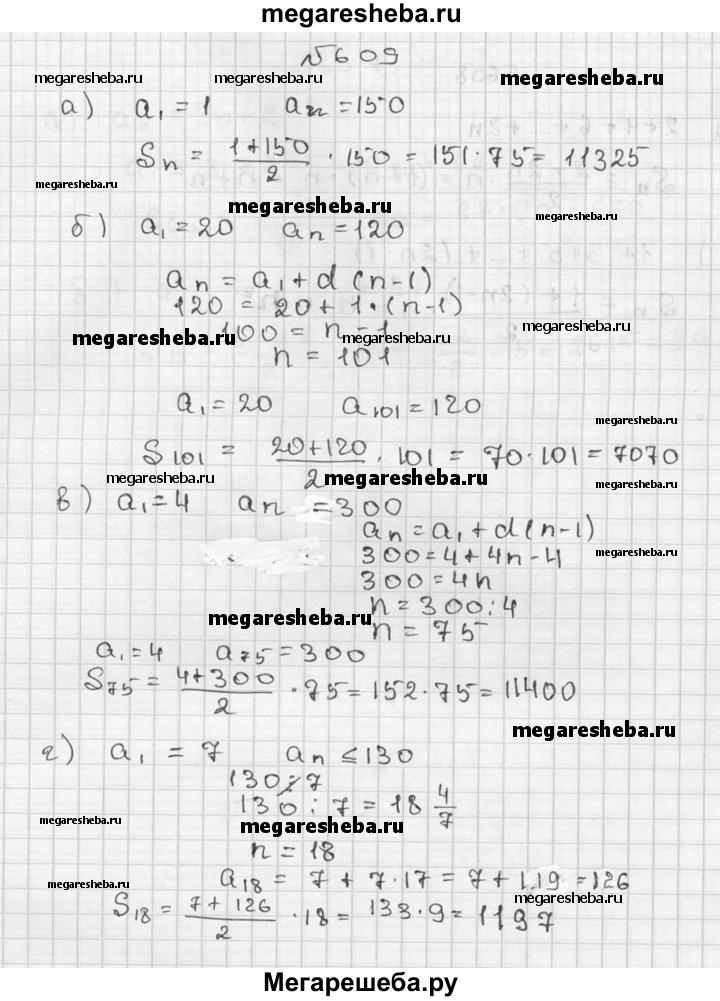 megaresheba.ru
№609
megaresheba.ru megaresheba.ru megaresheba.ru
а) a₁ = 1 aₙ = 150
Sₙ = (1+150)/2 · 150 = 151·75 = 11325
megaresheba.ru
megaresheba.ru megaresheba.ru
б) a₁ = 20 aₙ = 120
aₙ = a₁ + d(n-1)
120 = 20 + 1·(n-1)
100 = n - 1
megaresheba.ru megaresheba.ru megaresheba.ru
n = 101
a₁ = 20 a₁₀₁ = 120
megaresheba.ru
S₁₀₁ = (20+120)/2 · 101 = 70·101 = 7070
megaresheba.ru megaresheba.ru megaresheba.ru
в) a₁ = 4 aₙ = 300
aₙ = a₁ + d(n-1)
300 = 4 + 4n - 4
megaresheba.ru
300 = 4n
n = 300 : 4
megaresheba.ru megaresheba.ru
n = 75
a₁ = 4 a₇₅ = 300
S₇₅ = (4+300)/2 · 75 = 152·75 = 11400
megaresheba.ru
г) a₁ = 7 aₙ ≤ 130
130 ⋮̸ 7
130 : 7 = 18 4/7
megaresheba.ru megaresheba.ru megaresheba.ru
n = 18
a₁₈ = 7 + 7·17 = 7 + 119 = 126
megaresheba.ru megaresheba.ru
S₁₈ = (7+126)/2 · 18 = 133·9 = 1197
megaresheba.ru
Мегарешеба.ру